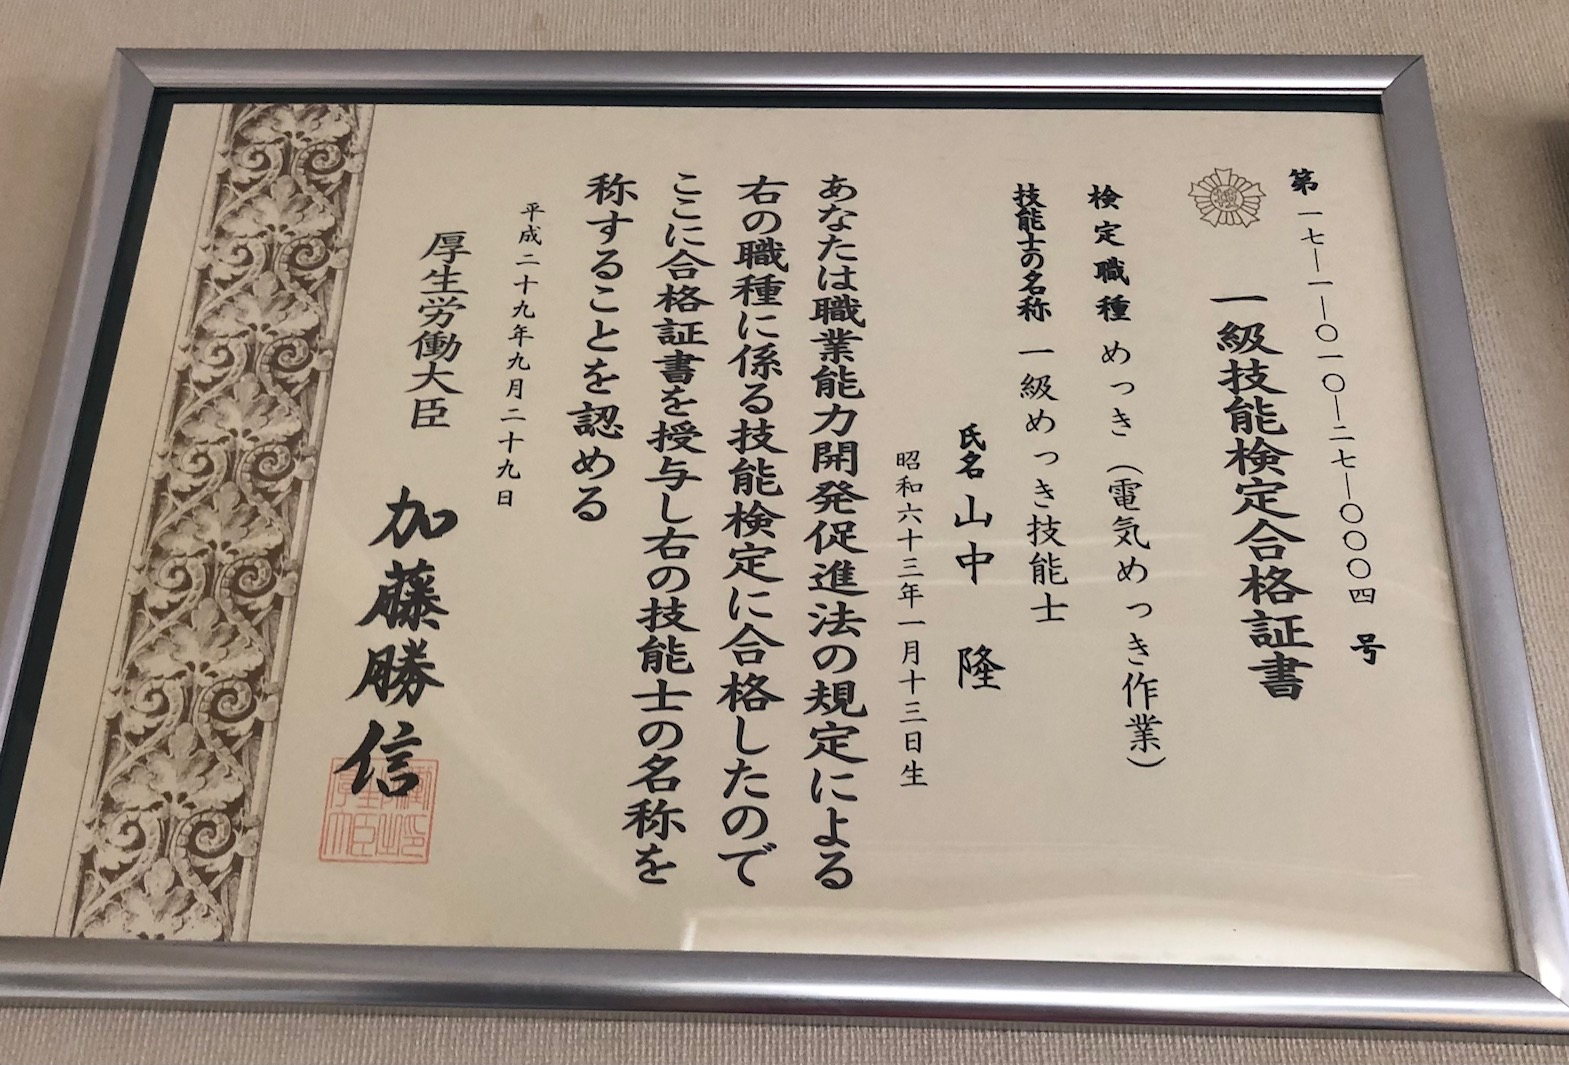 第一七―一―〇一〇―二七―〇〇〇四号
一級技能検定合格証書
検定職種 めっき（電気めっき作業）
技能士の名称 一級めっき技能士
氏名 山中 隆
昭和六十三年一月十三日生
あなたは職業能力開発促進法の規定による
右の職種に係る技能検定に合格したので
ここに合格証書を授与し右の技能士の名称を
称することを認める
平成二十九年九月二十九日
厚生労働大臣 加藤勝信